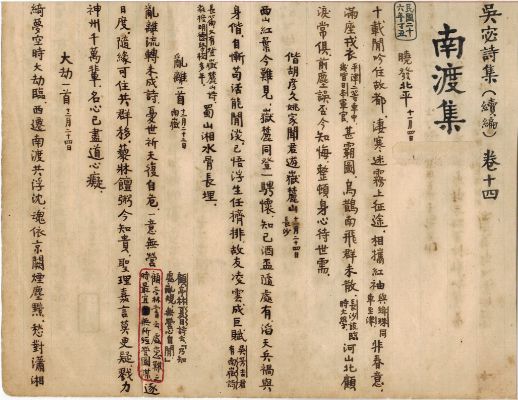 吳宓詩集（續編）卷十四
南渡集
民國二十六年丁丑
曉發北平 十一月四日
十載閒吟住故都，淒寒迷霧上征途。相攜紅袖 非春意，
滿座戎衣 甚霸圖。烏鵲南飛群未散， 河山北顧
淚常俱。前塵誤否今知悔，整頓身心待世需。
偕胡彥久姚家閬君遊嶽麓山 十一月二十四日 長沙
西山紅葉今難見，嶽麓同登一騁懷。知己酒盃隨處有，滔天兵禍與
身偕。自慚苟活能閒淡，已悟浮生任擠排。故友凌雲成巨賦，
蜀山湘水骨長埋。
亂離一首 十二月二十三日 南嶽
亂離流轉未成詩，憂世祈天復自危。一意無營 逐
日度，隨緣可住共群移。藜牀饘粥今知貴，聖理嘉言莫更疑。戮力
神州千萬輩，名心已盡道心癡。
大劫一首 十二月二十四日
綺夢空時大劫臨，西遷南渡共浮沈。魂依京闕煙塵黯，愁對瀟湘